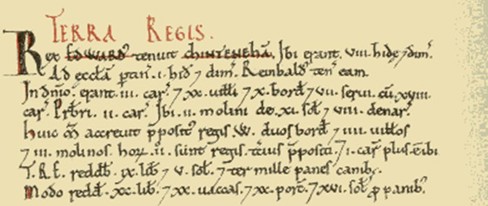 TERRA REGIS.
Rex EDWARD' tenuit CHINTENEHĀ. Ibi erant. VIII. hidę ⁊ dim̄.
Ad eccłam ptin̄. I. hid̄ ⁊ dim̄. Reinbald' ten̄ eam.
In dn̄io. erant. III. car̄. ⁊ XX. uilłi ⁊ X. bord̄ ⁊ VII. serui. cū. XVIII.
car̄. Pr̄bri. II. car̄. Ibi. II. molini de. XI. sol̄ ⁊ VIII. denar̄.
Huic m̄ accreuit pposit' regis. W. duos bord̄ ⁊ IIII. uiłłos
⁊ III. molinos. hoꝝ. II. sunt regis. tcius ppositi. ⁊ I. car̄ plus. ē ibi
T.R.E. reddeb̄. IX. lib̄ ⁊ V. sol̄. ⁊ ter mille panes canib;.
Modo redd̄. XX. lib̄. ⁊ XX. uaccas. ⁊ XX. porc̄. ⁊ XVI. sol̄. p panib;.